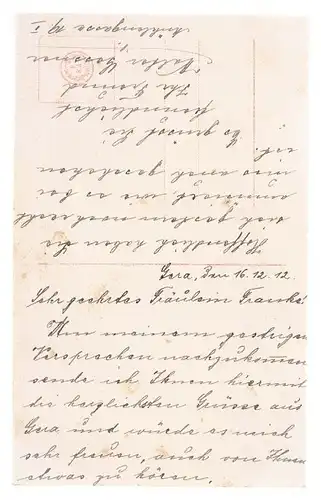 Gera, den 16.12.12.
Sehr geehrtes Fräulein Franke!
Um meinem gestrigen
Versprechen nachzukommen
sende ich Ihnen hiermit
die herzlichsten Grüsse aus
Gera und würde es mich
sehr freuen, auch von Ihnen
etwas zu hören.
Hoffentlich haben Sie
sich gestern noch recht
amüsiert, wie es bei
uns auch geschehen
ist.
Es grüsst Sie
freundlichst
Ihr Freund
Walter